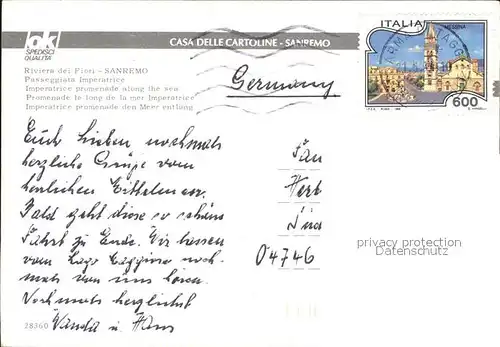 ok
SPEDISCI
QUALITÀ
CASA DELLE CARTOLINE - SANREMO
ITALIA
MESSINA
600
Riviera dei Fiori - SANREMO
Passeggiata Imperatrice
Imperatrice promenade along the sea
Promenade le long de la mer Imperatrice
Imperatrice promenade den Meer entlang
Germany
Euch Lieben nochmals
herzliche Grüße vom
herrlichen
Bald geht diese so schöne
Fahrt zu Ende. Wir lassen
vom Lago Maggiore noch-
mals von uns hören.
Nochmals herzlichst
Wanda u. Hans
Fam
Herb
04746
privacy protection
Datenschutz
28360